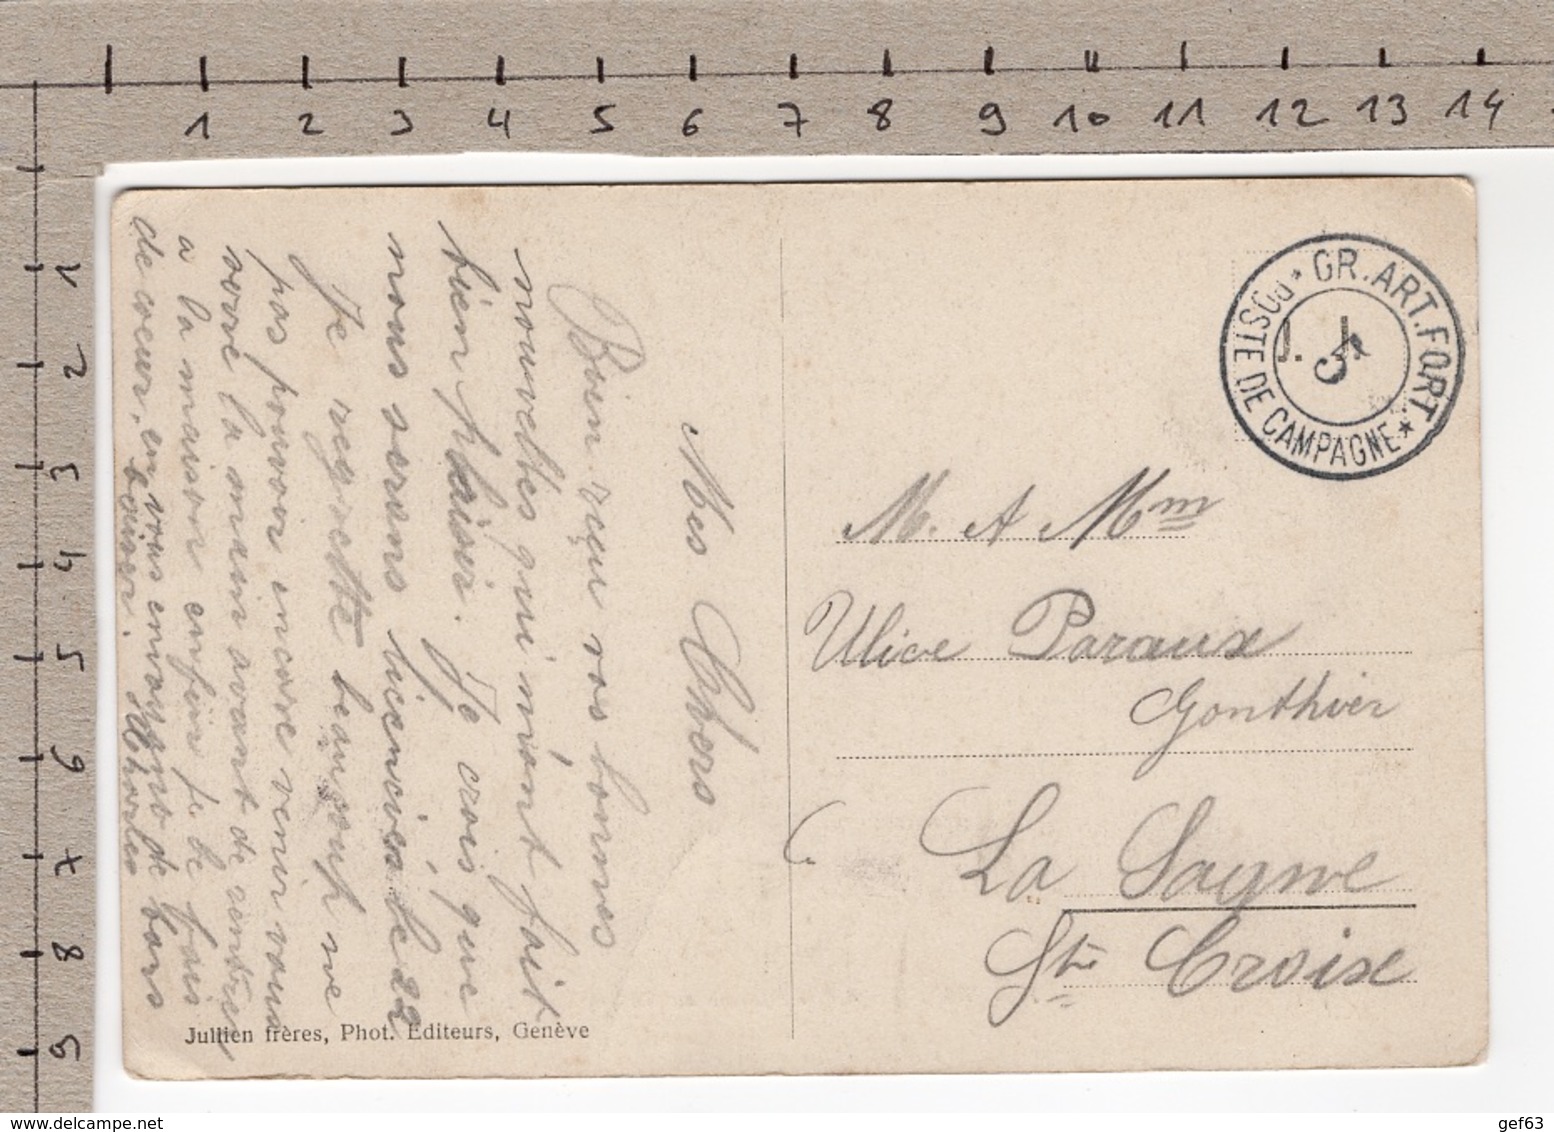 1 2 3 4 5 6 7 8 9 10 11 12 13 14
1
2
3
4
5
6
7
8
9
Mes Chers
Bien reçu vos bonnes
nouvelles qui m'ont fait
bien plaisir. Je crois que
nous serons licenciés le 22
Je regrette beaucoup ne
pas pouvoir encore venir vous
serré la main avant de rentrer
a la maison enfin je le fais
de coeur, en vous envoyant de bons
baiser. Charles
Jullien frères, Phot. Editeurs, Genève
* GR. ART. FORT. *
POSTE DE CAMPAGNE
J.
M. A Mm
Ulice Paraux
Gonthier
La Sagne
Ste Croix
www.delcampe.net
gef63